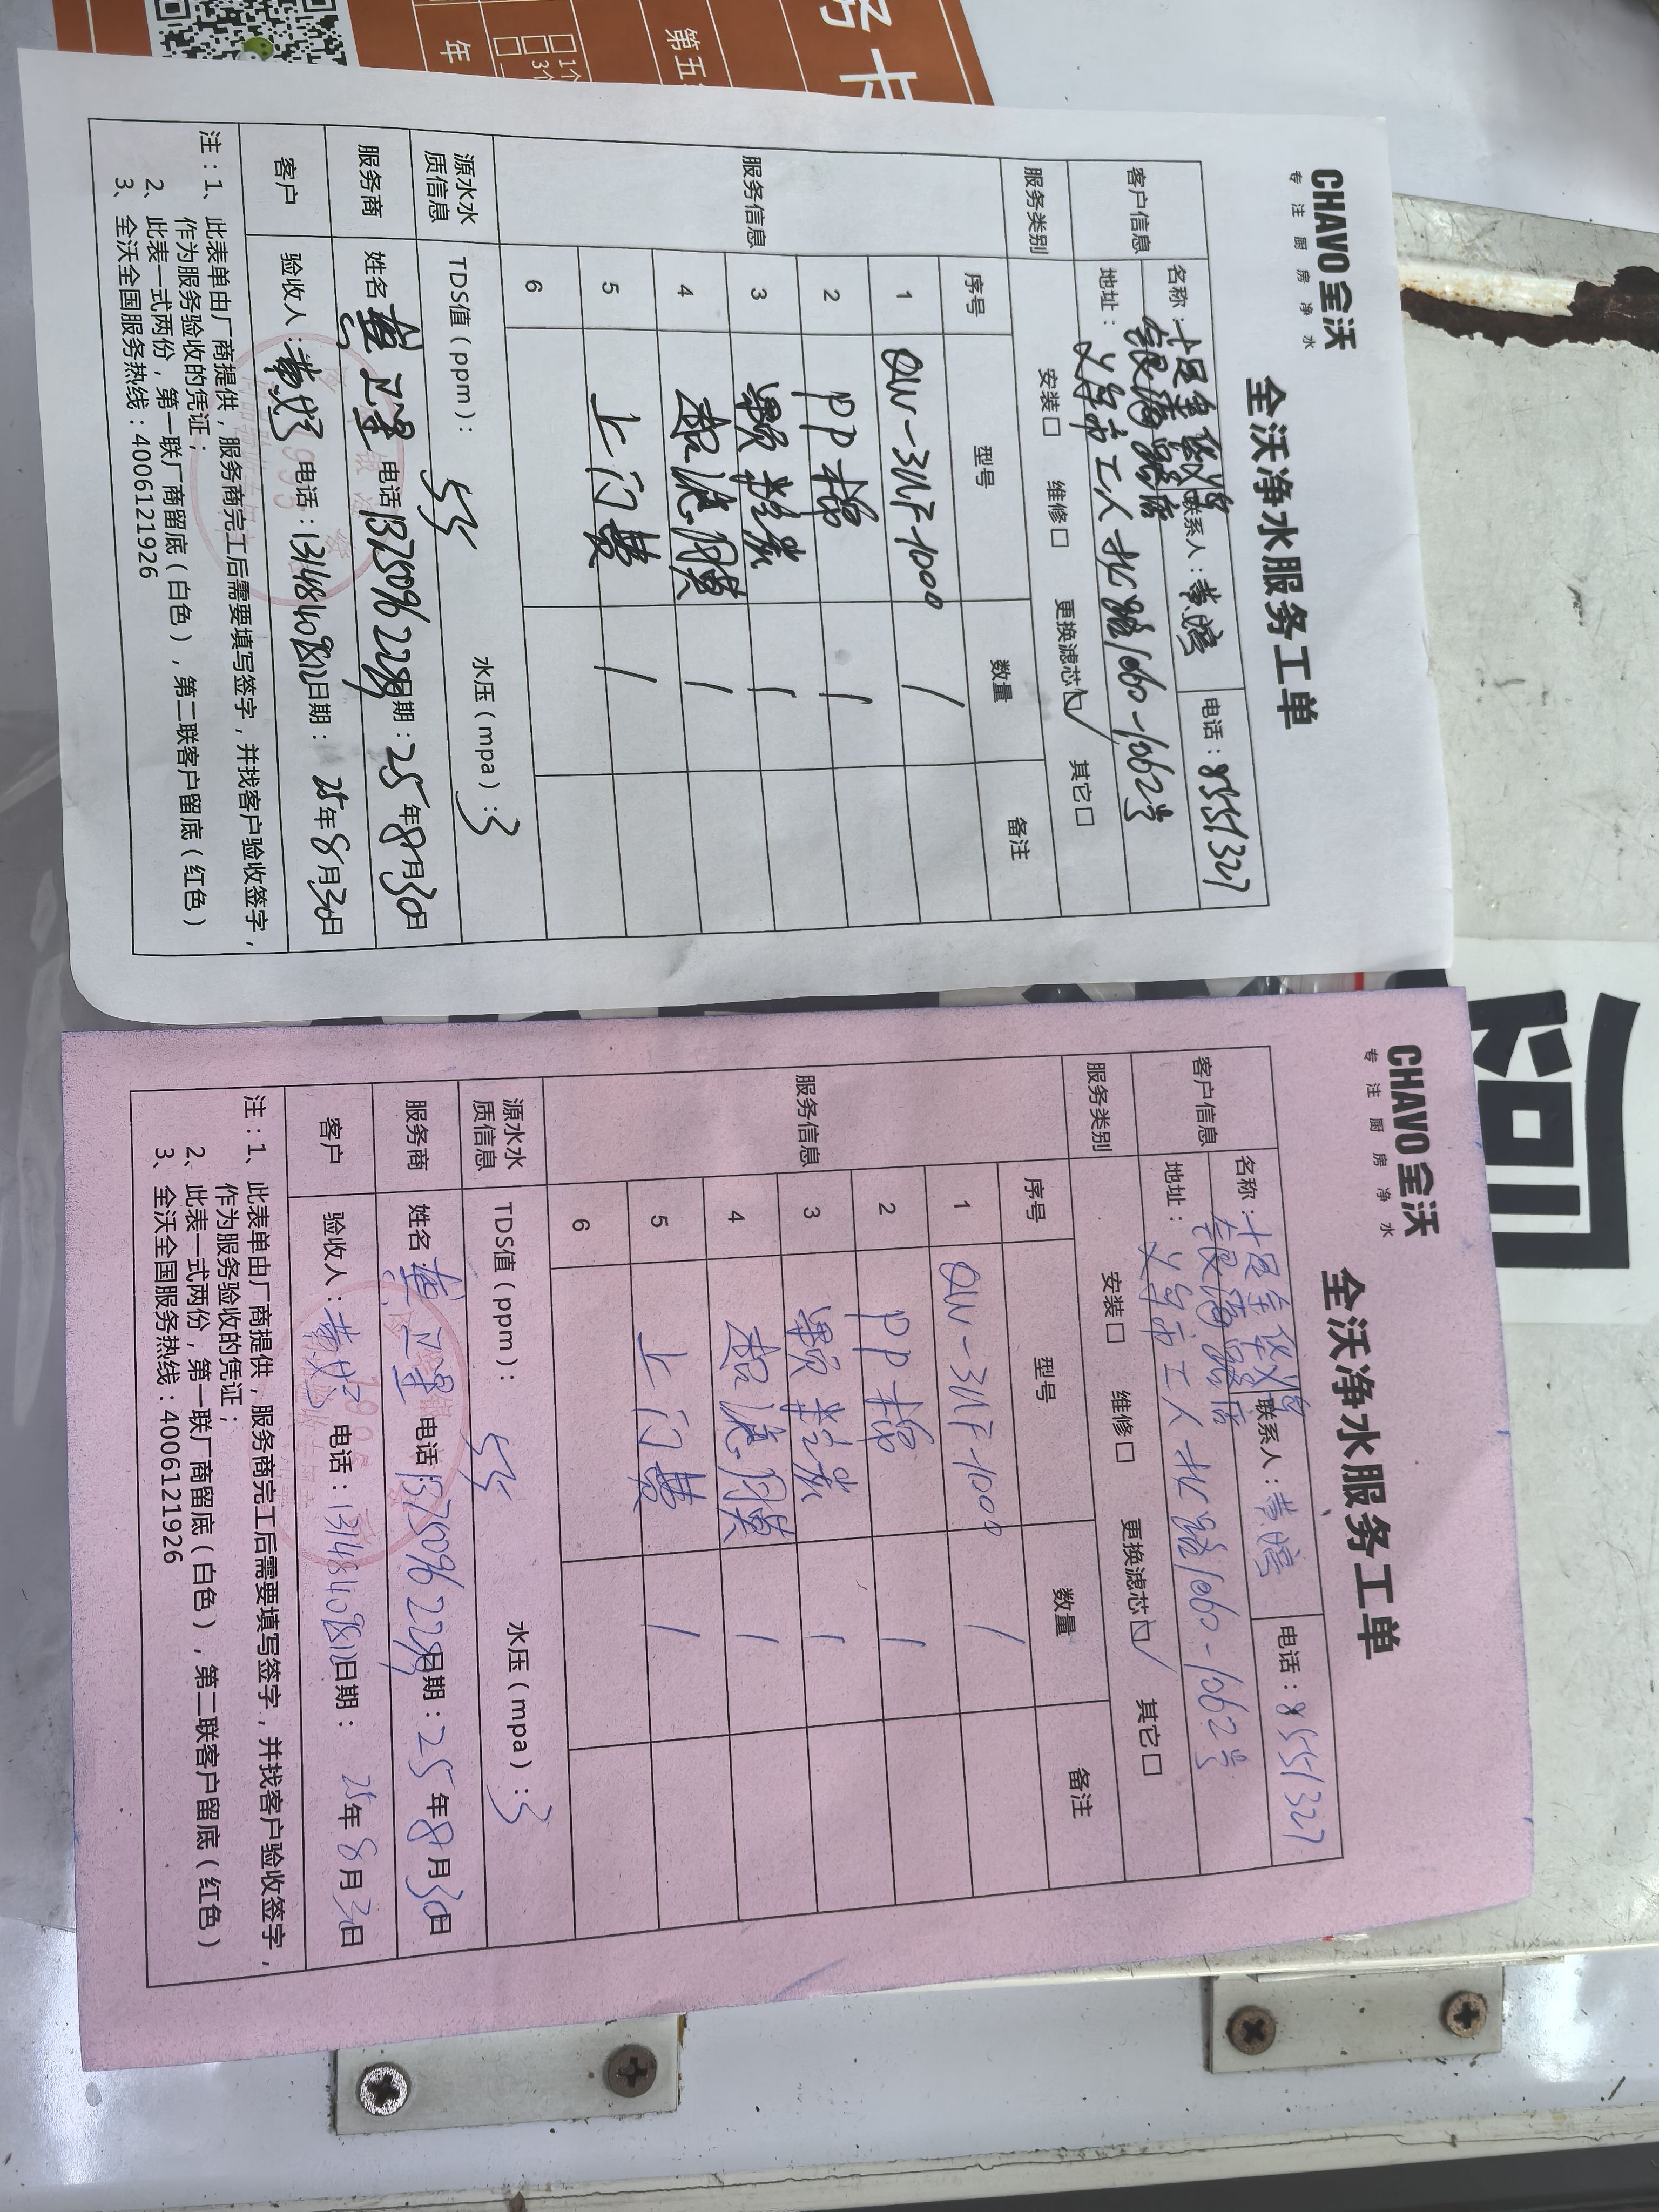 务卡
第五
年
□1个
□3个
CHAVO全沃
专注厨房净水
全沃净水服务工单
客户信息
名称：十足金华义乌
银海路店
联系人：黄湾
电话：85551327
地址：义乌市工人北路1060-1062号
服务类别
安装□ 维修□ 更换滤芯☑ 其它□
服务信息
序号 型号 数量 备注
1 QW-3UF-1000 1
2 PP棉 1
3 颗粒炭 1
4 超滤膜 1
5 上门费 1
6
源水水质信息
TDS值（ppm）：55 水压（mpa）：3
服务商
姓名 电话：13750962289 日期：25年8月30日
客户
验收人：黄 电话：13148409812 日期：25年8月30日
注：1、此表单由厂商提供，服务商完工后需要填写签字，并找客户验收签字，
作为服务验收的凭证；
2、此表一式两份，第一联厂商留底（白色），第二联客户留底（红色）
3、全沃全国服务热线：4006121926
CHAVO全沃
专注厨房净水
全沃净水服务工单
客户信息
名称：十足金华义乌
银海路店
联系人：黄湾
电话：85551327
地址：义乌市工人北路1060-1062号
服务类别
安装□ 维修□ 更换滤芯☑ 其它□
服务信息
序号 型号 数量 备注
1 QW-3UF-1000 1
2 PP棉 1
3 颗粒炭 1
4 超滤膜 1
5 上门费 1
6
源水水质信息
TDS值（ppm）：55 水压（mpa）：3
服务商
姓名 电话：13750962289 日期：25年8月30日
客户
验收人：黄 电话：13148409812 日期：25年8月30日
注：1、此表单由厂商提供，服务商完工后需要填写签字，并找客户验收签字，
作为服务验收的凭证；
2、此表一式两份，第一联厂商留底（白色），第二联客户留底（红色）
3、全沃全国服务热线：4006121926